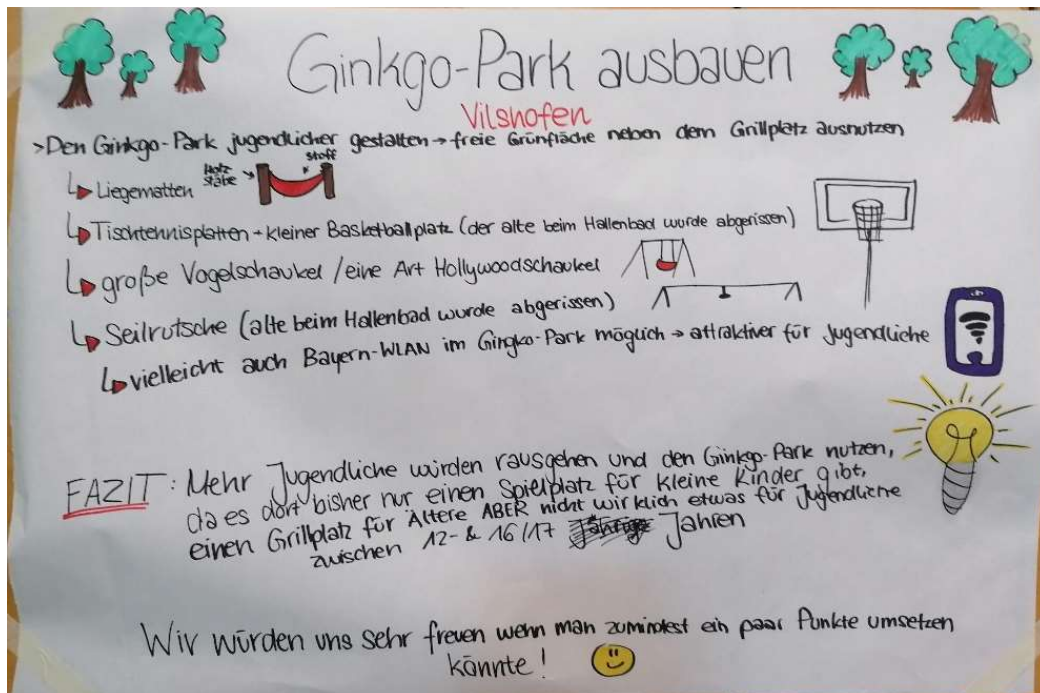 Ginkgo-Park ausbauen
Vilshofen
>Den Ginkgo-Park jugendlicher gestalten → freie Grünfläche neben dem Grillplatz ausnutzen
↳ Liegematten
Holz
stäbe
Stoff
↳ Tischtennisplatten + kleiner Basketballplatz (der alte beim Hallenbad wurde abgerissen)
↳ große Vogelschaukel / eine Art Hollywoodschaukel
↳ Seilrutsche (alte beim Hallenbad wurde abgerissen)
↳ vielleicht auch Bayern-WLAN im Gingko-Park möglich → attraktiver für Jugendliche
FAZIT: Mehr Jugendliche würden rausgehen und den Ginkgo-Park nutzen,
da es dort bisher nur einen Spielplatz für kleine Kinder gibt,
einen Grillplatz für Ältere ABER nicht wirklich etwas für Jugendliche
zwischen 12- & 16/17 Jahren
Wir würden uns sehr freuen wenn man zumindest ein paar Punkte umsetzen
könnte!